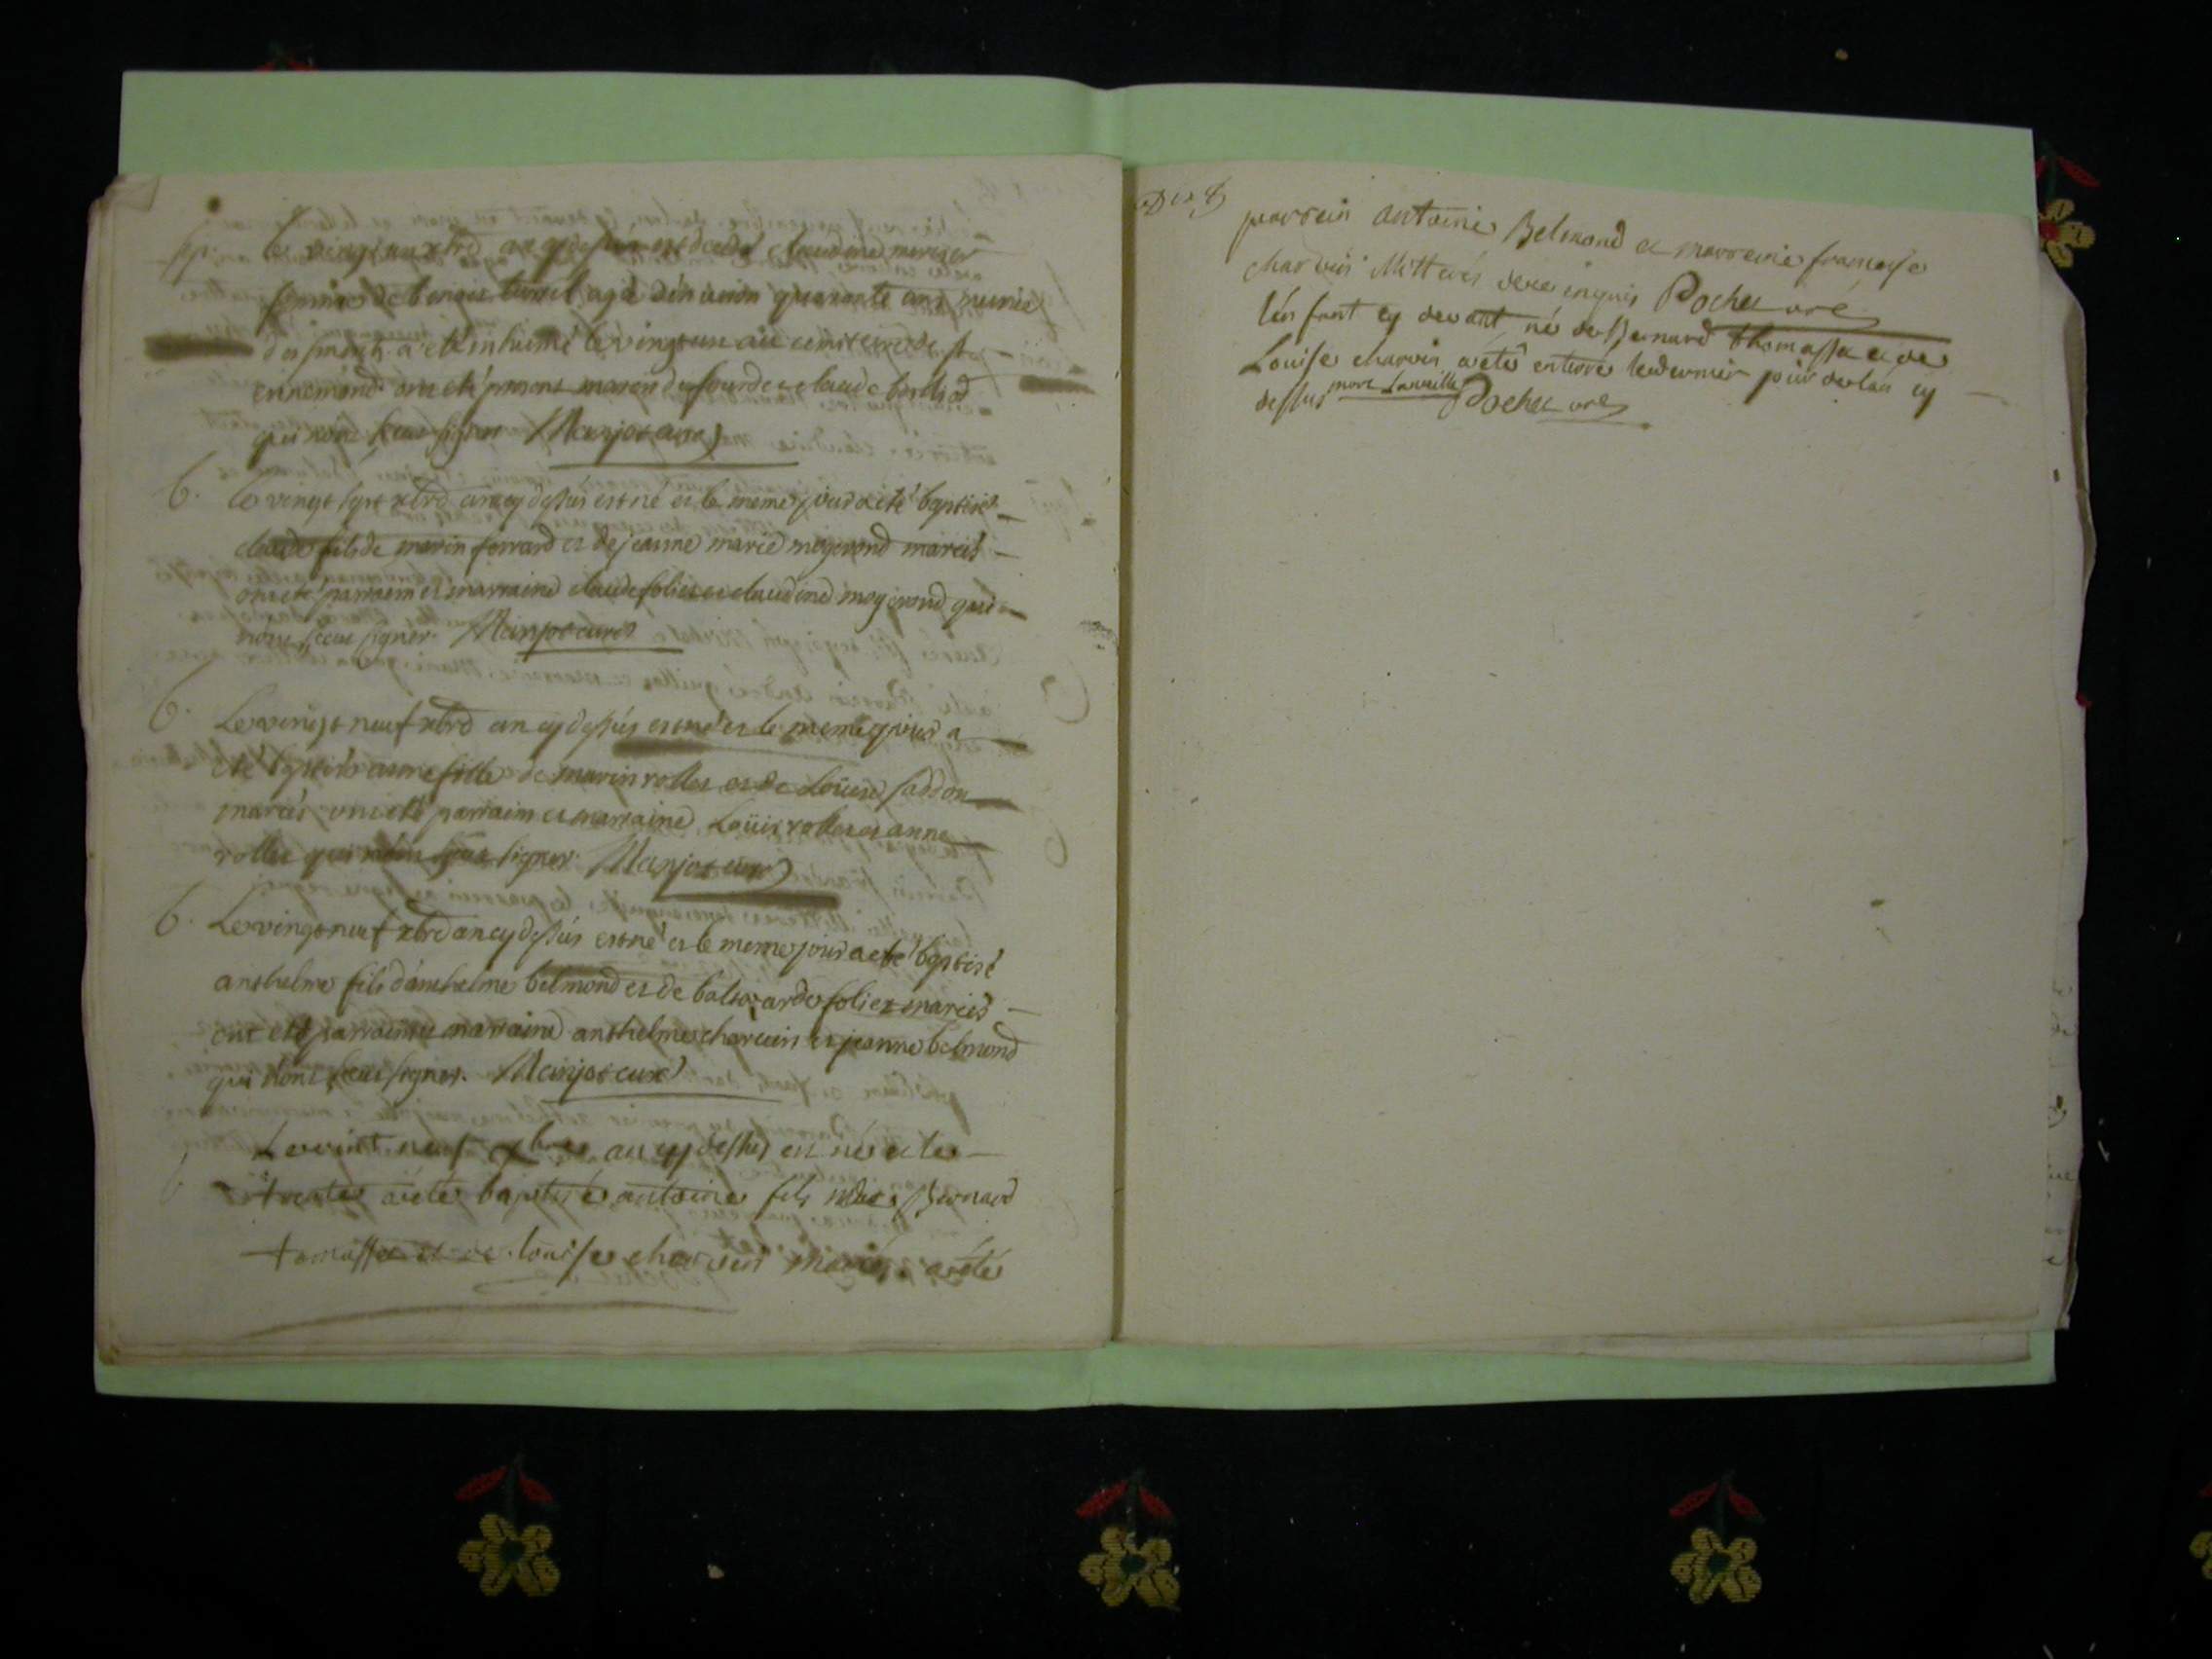 sep. Le vingt un xbre an cy dessus est decedée claudine mercier
femme de benoit tinnel agée d'environ quarante ans munie
des smens a eté inhumé le vingt un au cemiteire de st
ennemond ont eté presens marin dufour et claude
qui n'ont sceu signer Marjot curé
b. le vingt sept xbre an cy dessus est né et le meme jour a eté baptisé
claude fils de marin forrard et de jeanne marie mogerond mariés
ont eté parraein et marraine claude folies et claudine mogerond qui
n'ont sceu signer. Marjot curé
b. Le vingt neuf xbre an cy dessus est née et le meme jour a
eté baptisée anne fille de marin rollet et de Loüise saddon
mariés ont eté parraein et marraine Loüis rollet et anne
rollet qui n'ont sceu signer Marjot curé
b. Le vingt neuf xbre an cy dessus est né et le meme jour a eté baptisé
anthelme fils d'anthelme belmond et de baltazarde folier mariés
ont eté parrain et marraine anthelme charvin et jeanne belmond
qui n'ont sceu signer. Marjot curé
b Le vint neuf xbre an cy dessus est né et le
trente a eté baptisé antoine fils de Bernard
tomassa et de louise charvin mariés. a eté
parrein antoine Belmond et marreine francoise
charvin illitterés de ce inquis Pochet vre
l'enfant cy devant né de Bernard thomassa et de
Louise charvin a eté enterré le dernier jour de l'an cy
dessus Pochet vre